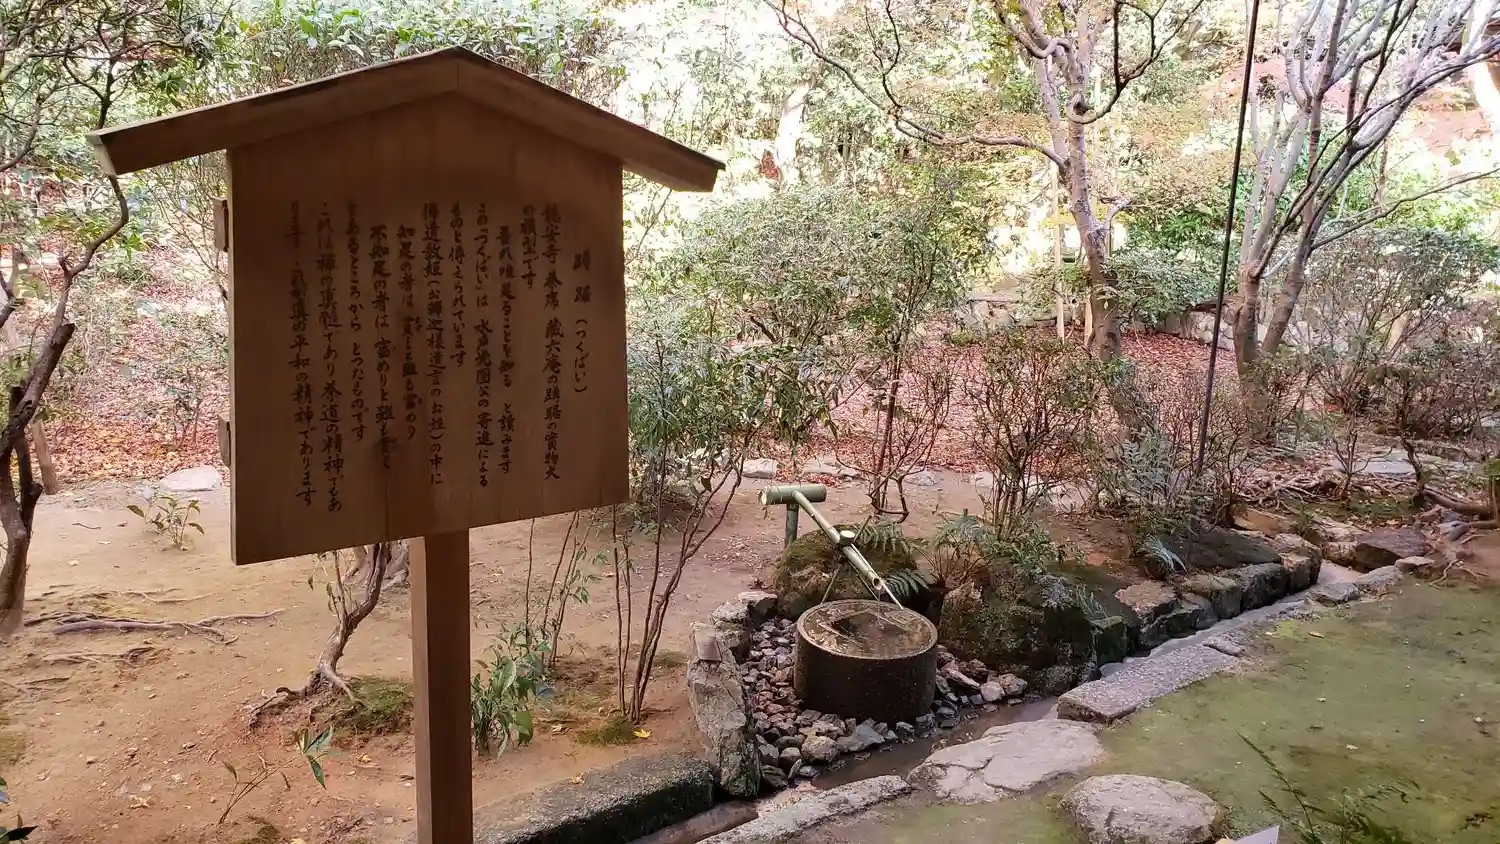 蹲踞（つくばい）
龍安寺 茶席 蔵六庵の蹲踞の実物大
の模型です
吾れ唯足ることを知る と讀みます
この「つくばい」は 水戸光圀公の寄進による
ものと傳えられています
佛遺教経（お釋迦様遺言のお経）の中に
知足の者は 貧しと雖も富めり
不知足の者は 富めりと雖も貧し
とあるところから とったものです
これは禅の真髄であり茶道の精神でもあ
ります 之れが真の平和の精神であります